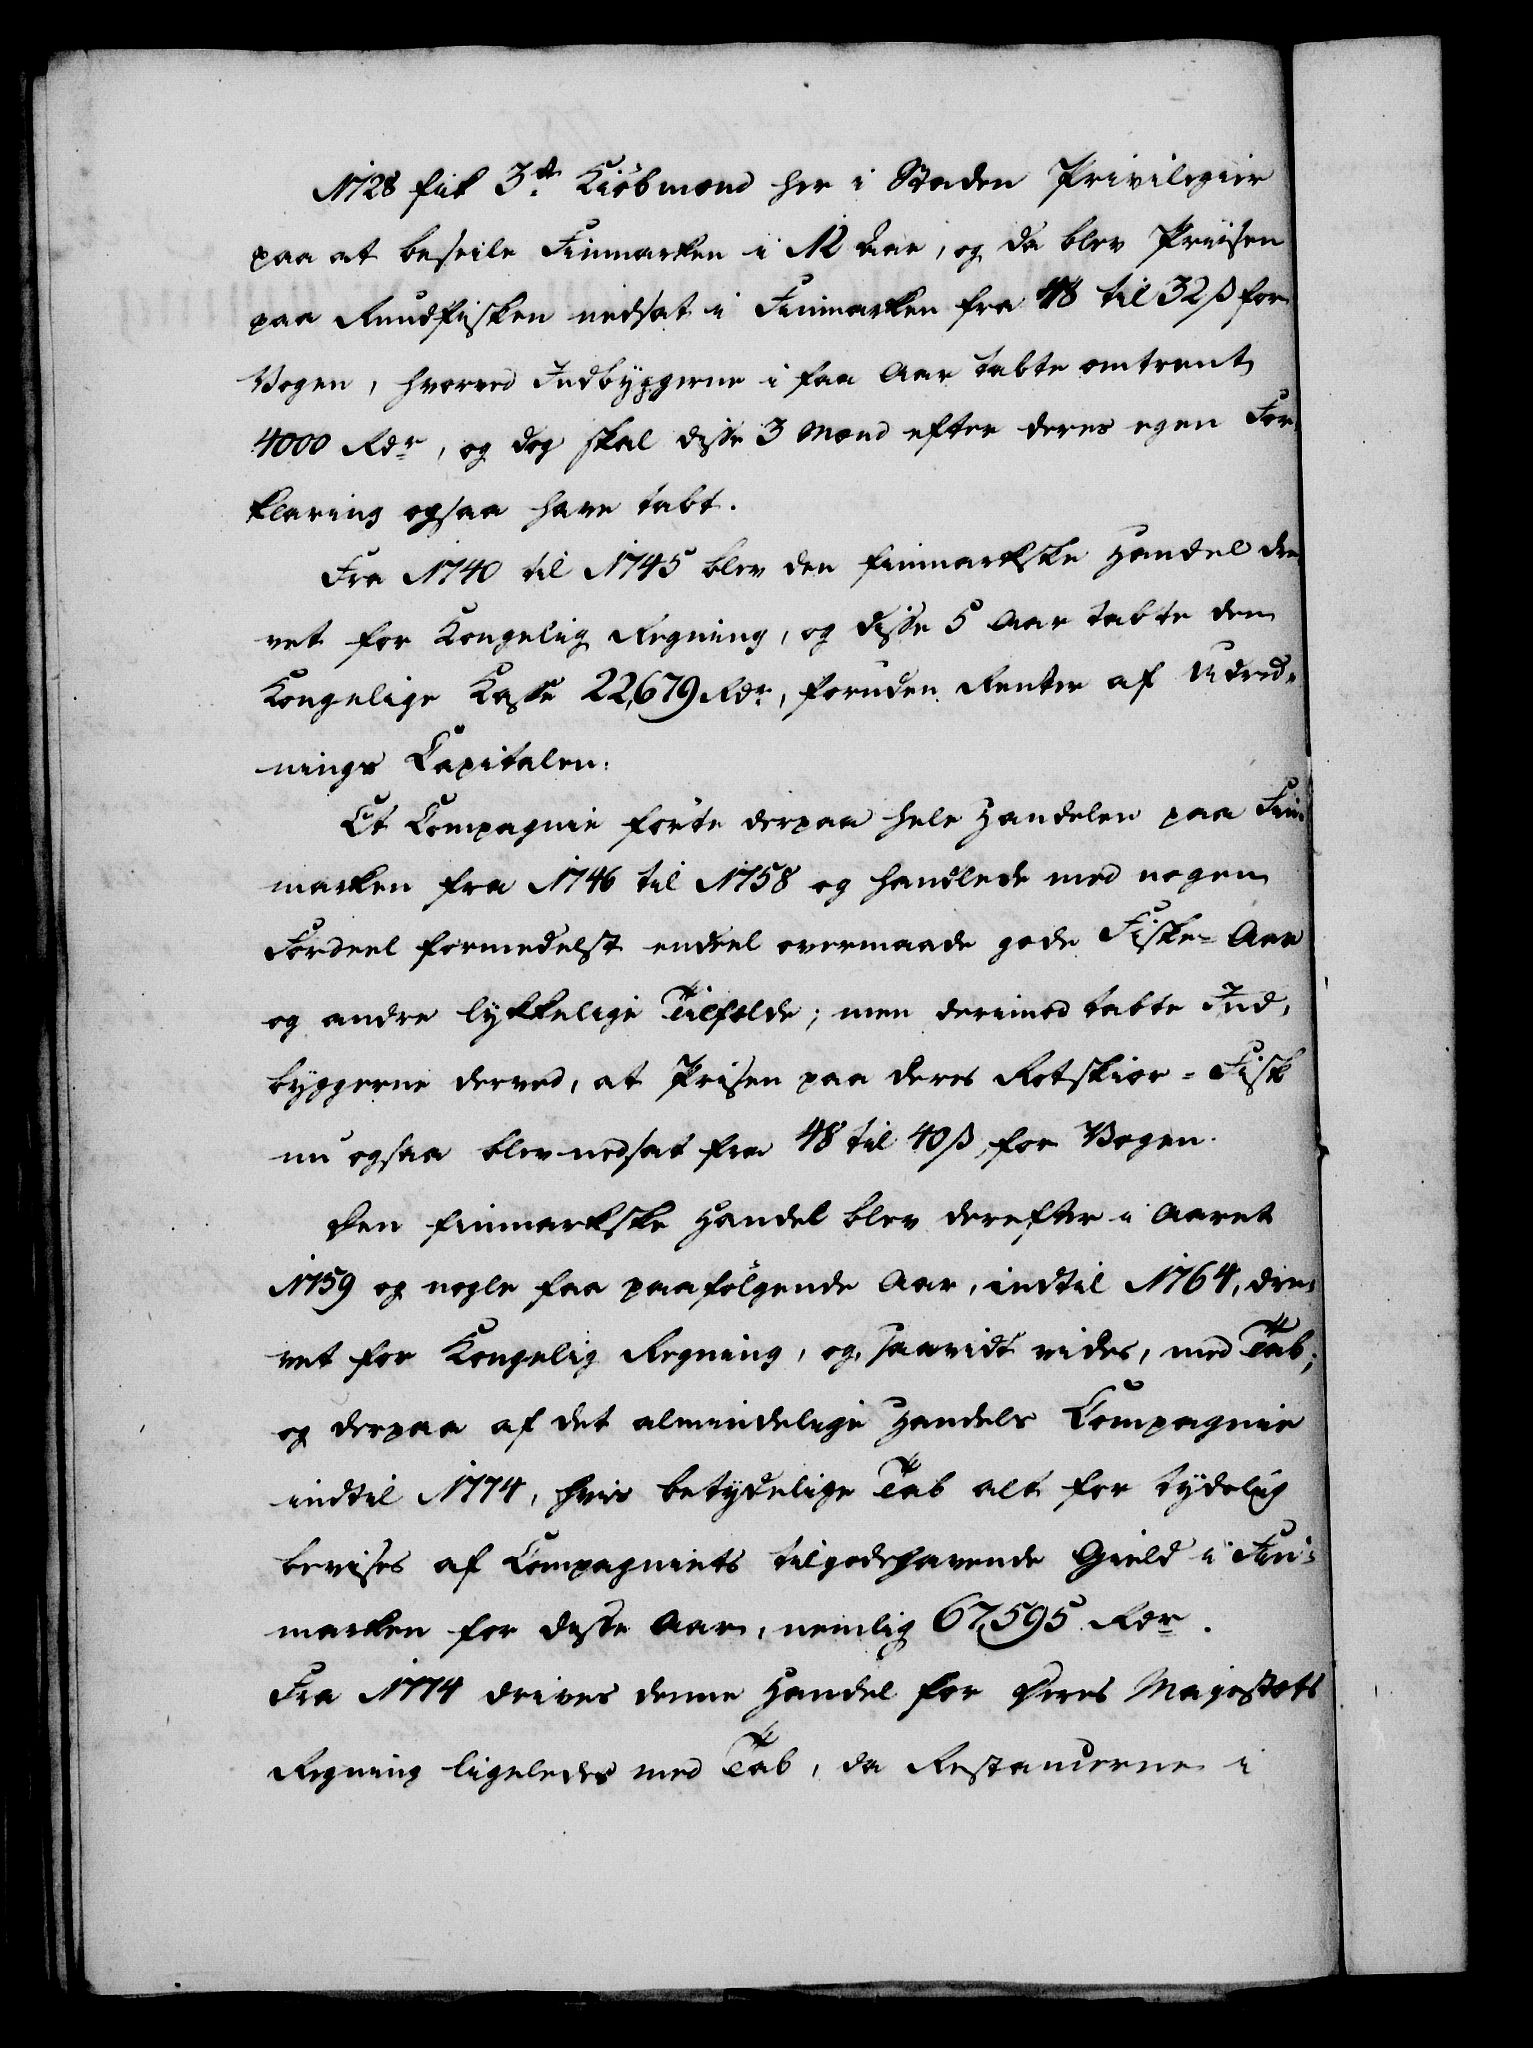 1728 fik 3de Kiöbmænd her i Staden Privilegier
paa at beseile Finmarken i 12 Aar, og da blev Priisen
paa Rundfisken nedsat i Finmarken fra 48 til 32 ß for
Vogen, hvorved Indbyggerne i faa Aar tabte omtrent
4000 Rdr, og dog skal disse 3 Mænd efter deres egen For-
klaring ogsaa have tabt.
Fra 1740 til 1745 blev den finmarkske Handel dre-
vet for Kongelig Regning, og disse 5 Aar tabte den
Kongelige Kasse 22,679 Rdr, foruden Renter af Udred-
nings Capitalen.
Et Compagnie förte derpaa hele Handelen paa Fin-
marken fra 1746 til 1758 og handlede med nogen
Fordeel formedelst endeel overmaade gode Fiske-Aar
og andre lykkelige Tilfælde; men derimod tabte Ind-
byggerne derved, at Prisen paa deres Rotskiær-Fisk
nu ogsaa blev nedsat fra 48 til 40 ß for Vogen.
Den finmarkske Handel blev derefter i Aaret
1759 og nogle faa paafölgende Aar, indtil 1764, dre-
vet for Kongelig Regning, og, saavidt vides, med Tab;
og derpaa af det almindelige Handels Compagnie
indtil 1774, hvis betydelige Tab alt for tydelig
bevises af Compagniets tilgodehavende Gield i Fin-
marken for disse Aar, nemlig 67,595 Rdr.
Fra 1774 drives denne Handel for Deres Majestæts
Regning ligeledes med Tab, da Restancerne i